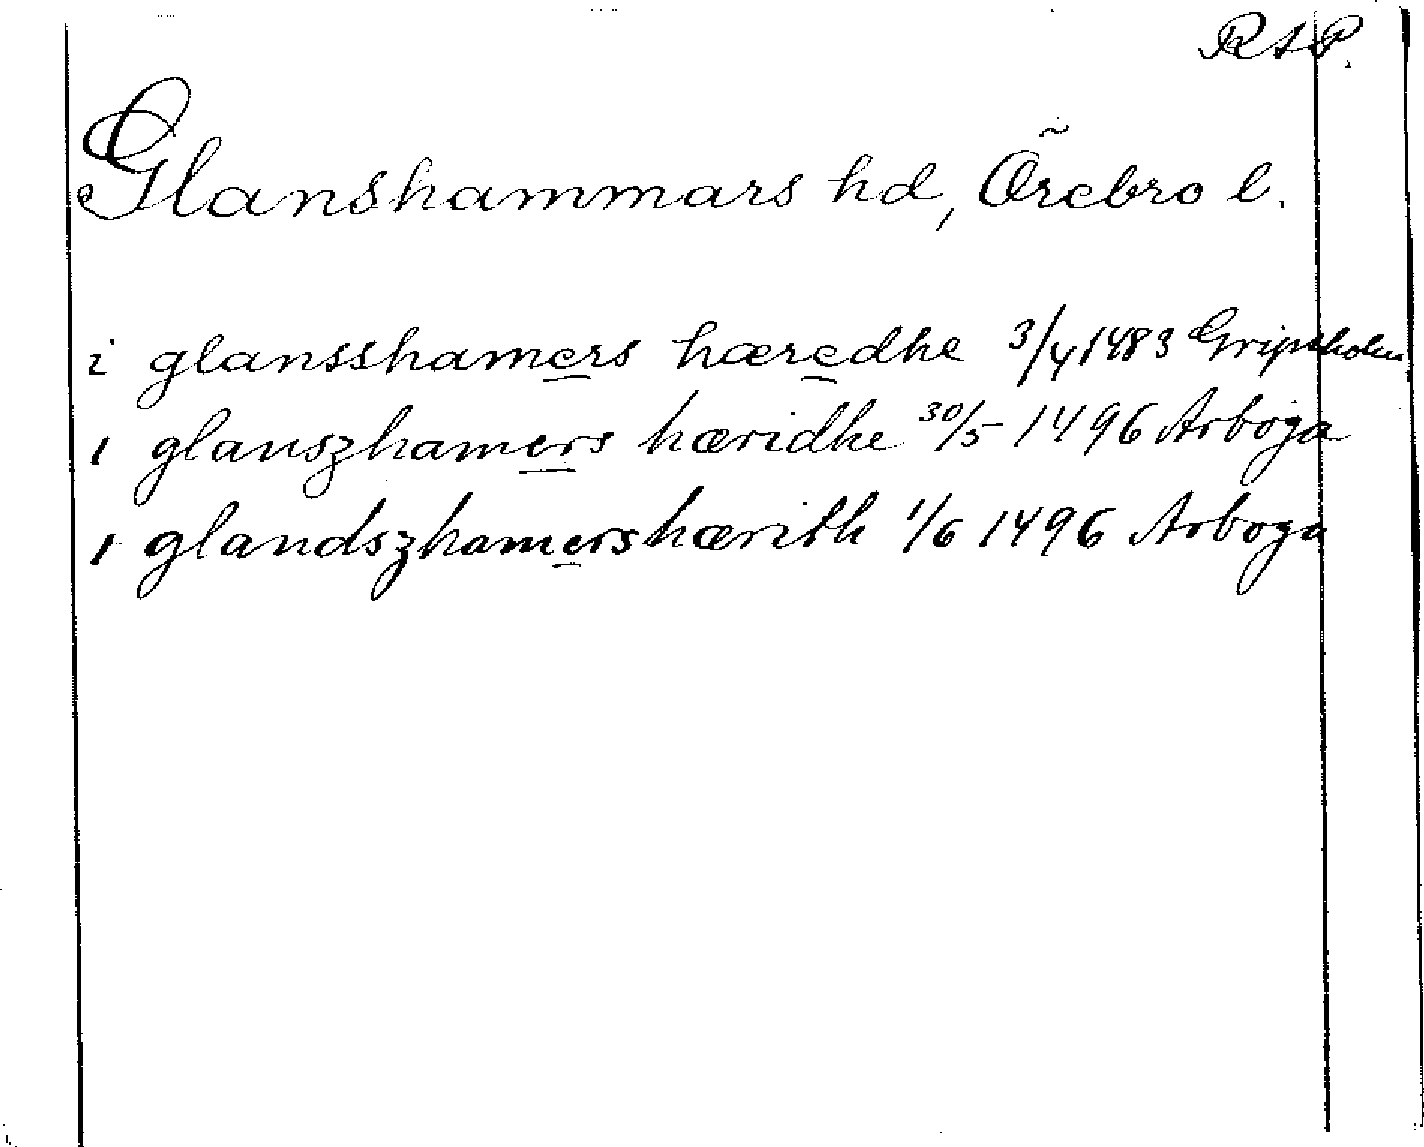 RAP.
Glanshammars hd, Örebro l.
i glansshamers hæredhe 3/4 1483 Gripsholm
i glanszhamers hæridhe 30/5 1496 Arboga
i glandszhamershærith 1/6 1496 Arboga